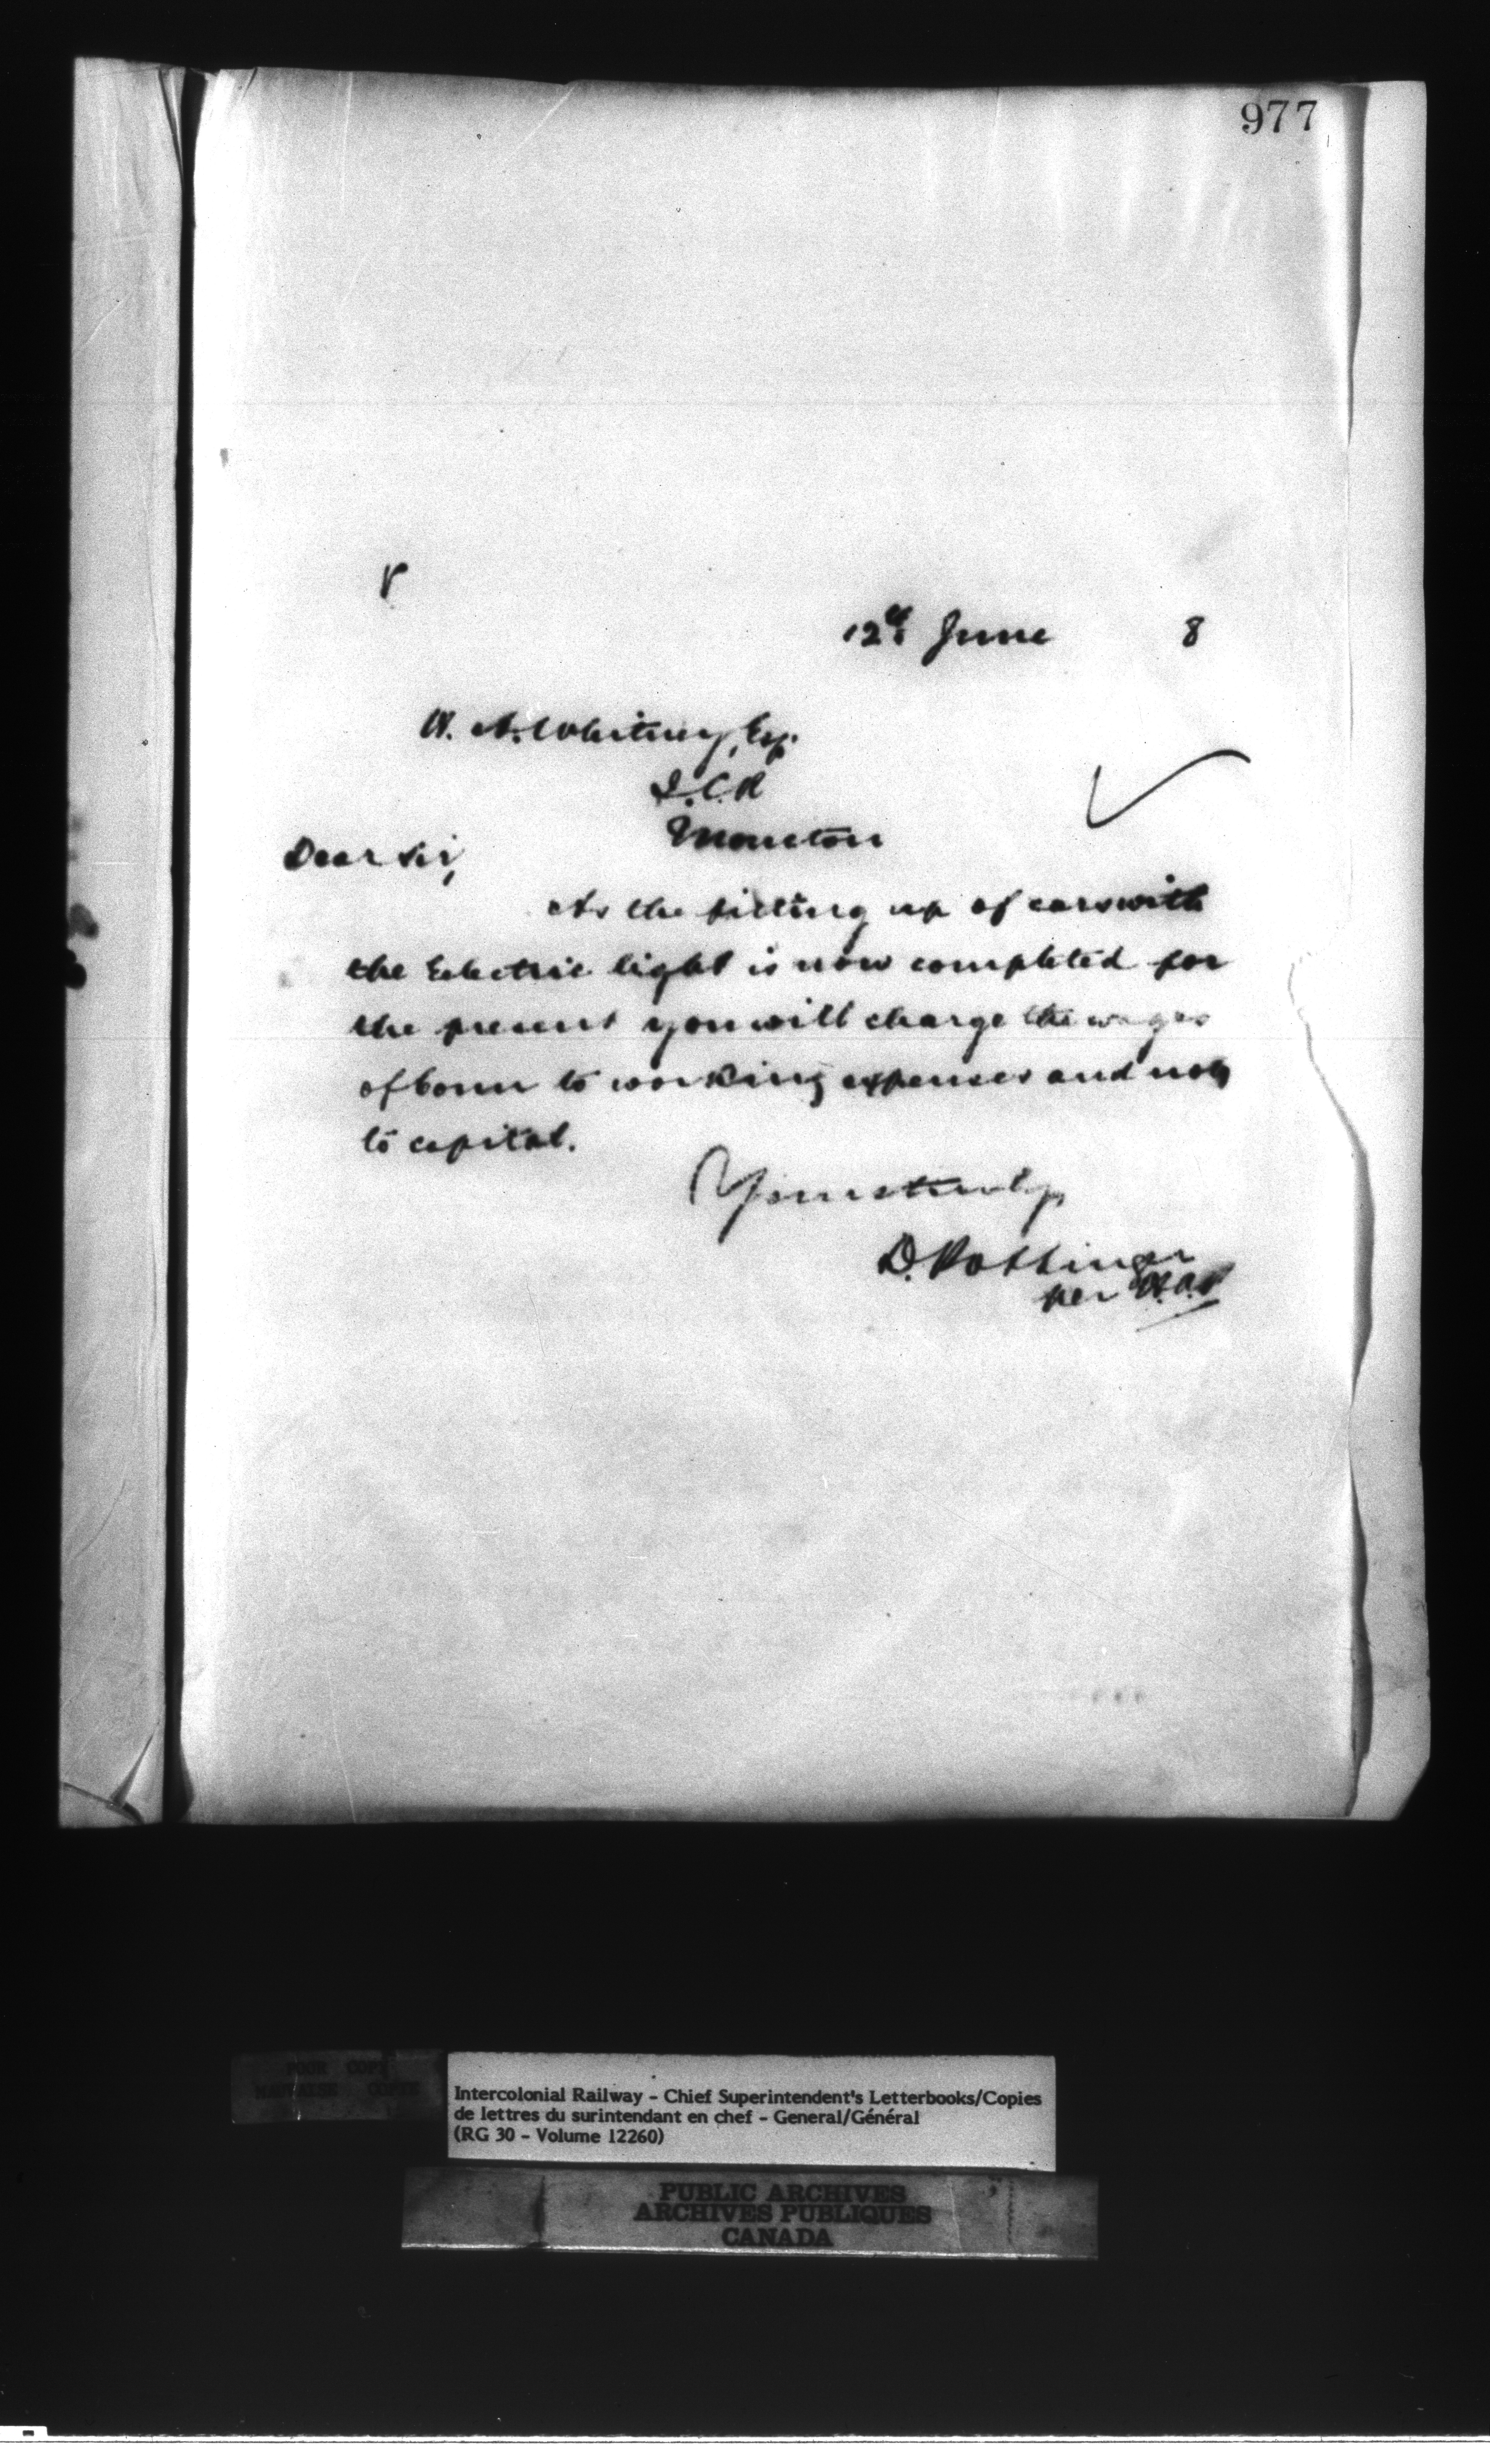 977
12th June 8
W. A. Whitney, Esq.
I.C.R
Moncton
Dear Sir,
As the fitting up of cars with
the Electric light is now completed for
the present you will charge the wages
of Conn to working expenses and not
to capital.
Yours truly
D. Pottinger
per
POOR COPY
MAUVAISE COPIE
Intercolonial Railway - Chief Superintendent's Letterbooks/Copies
de lettres du surintendant en chef - General/Général
(RG 30 - Volume 12260)
PUBLIC ARCHIVES
ARCHIVES PUBLIQUES
CANADA